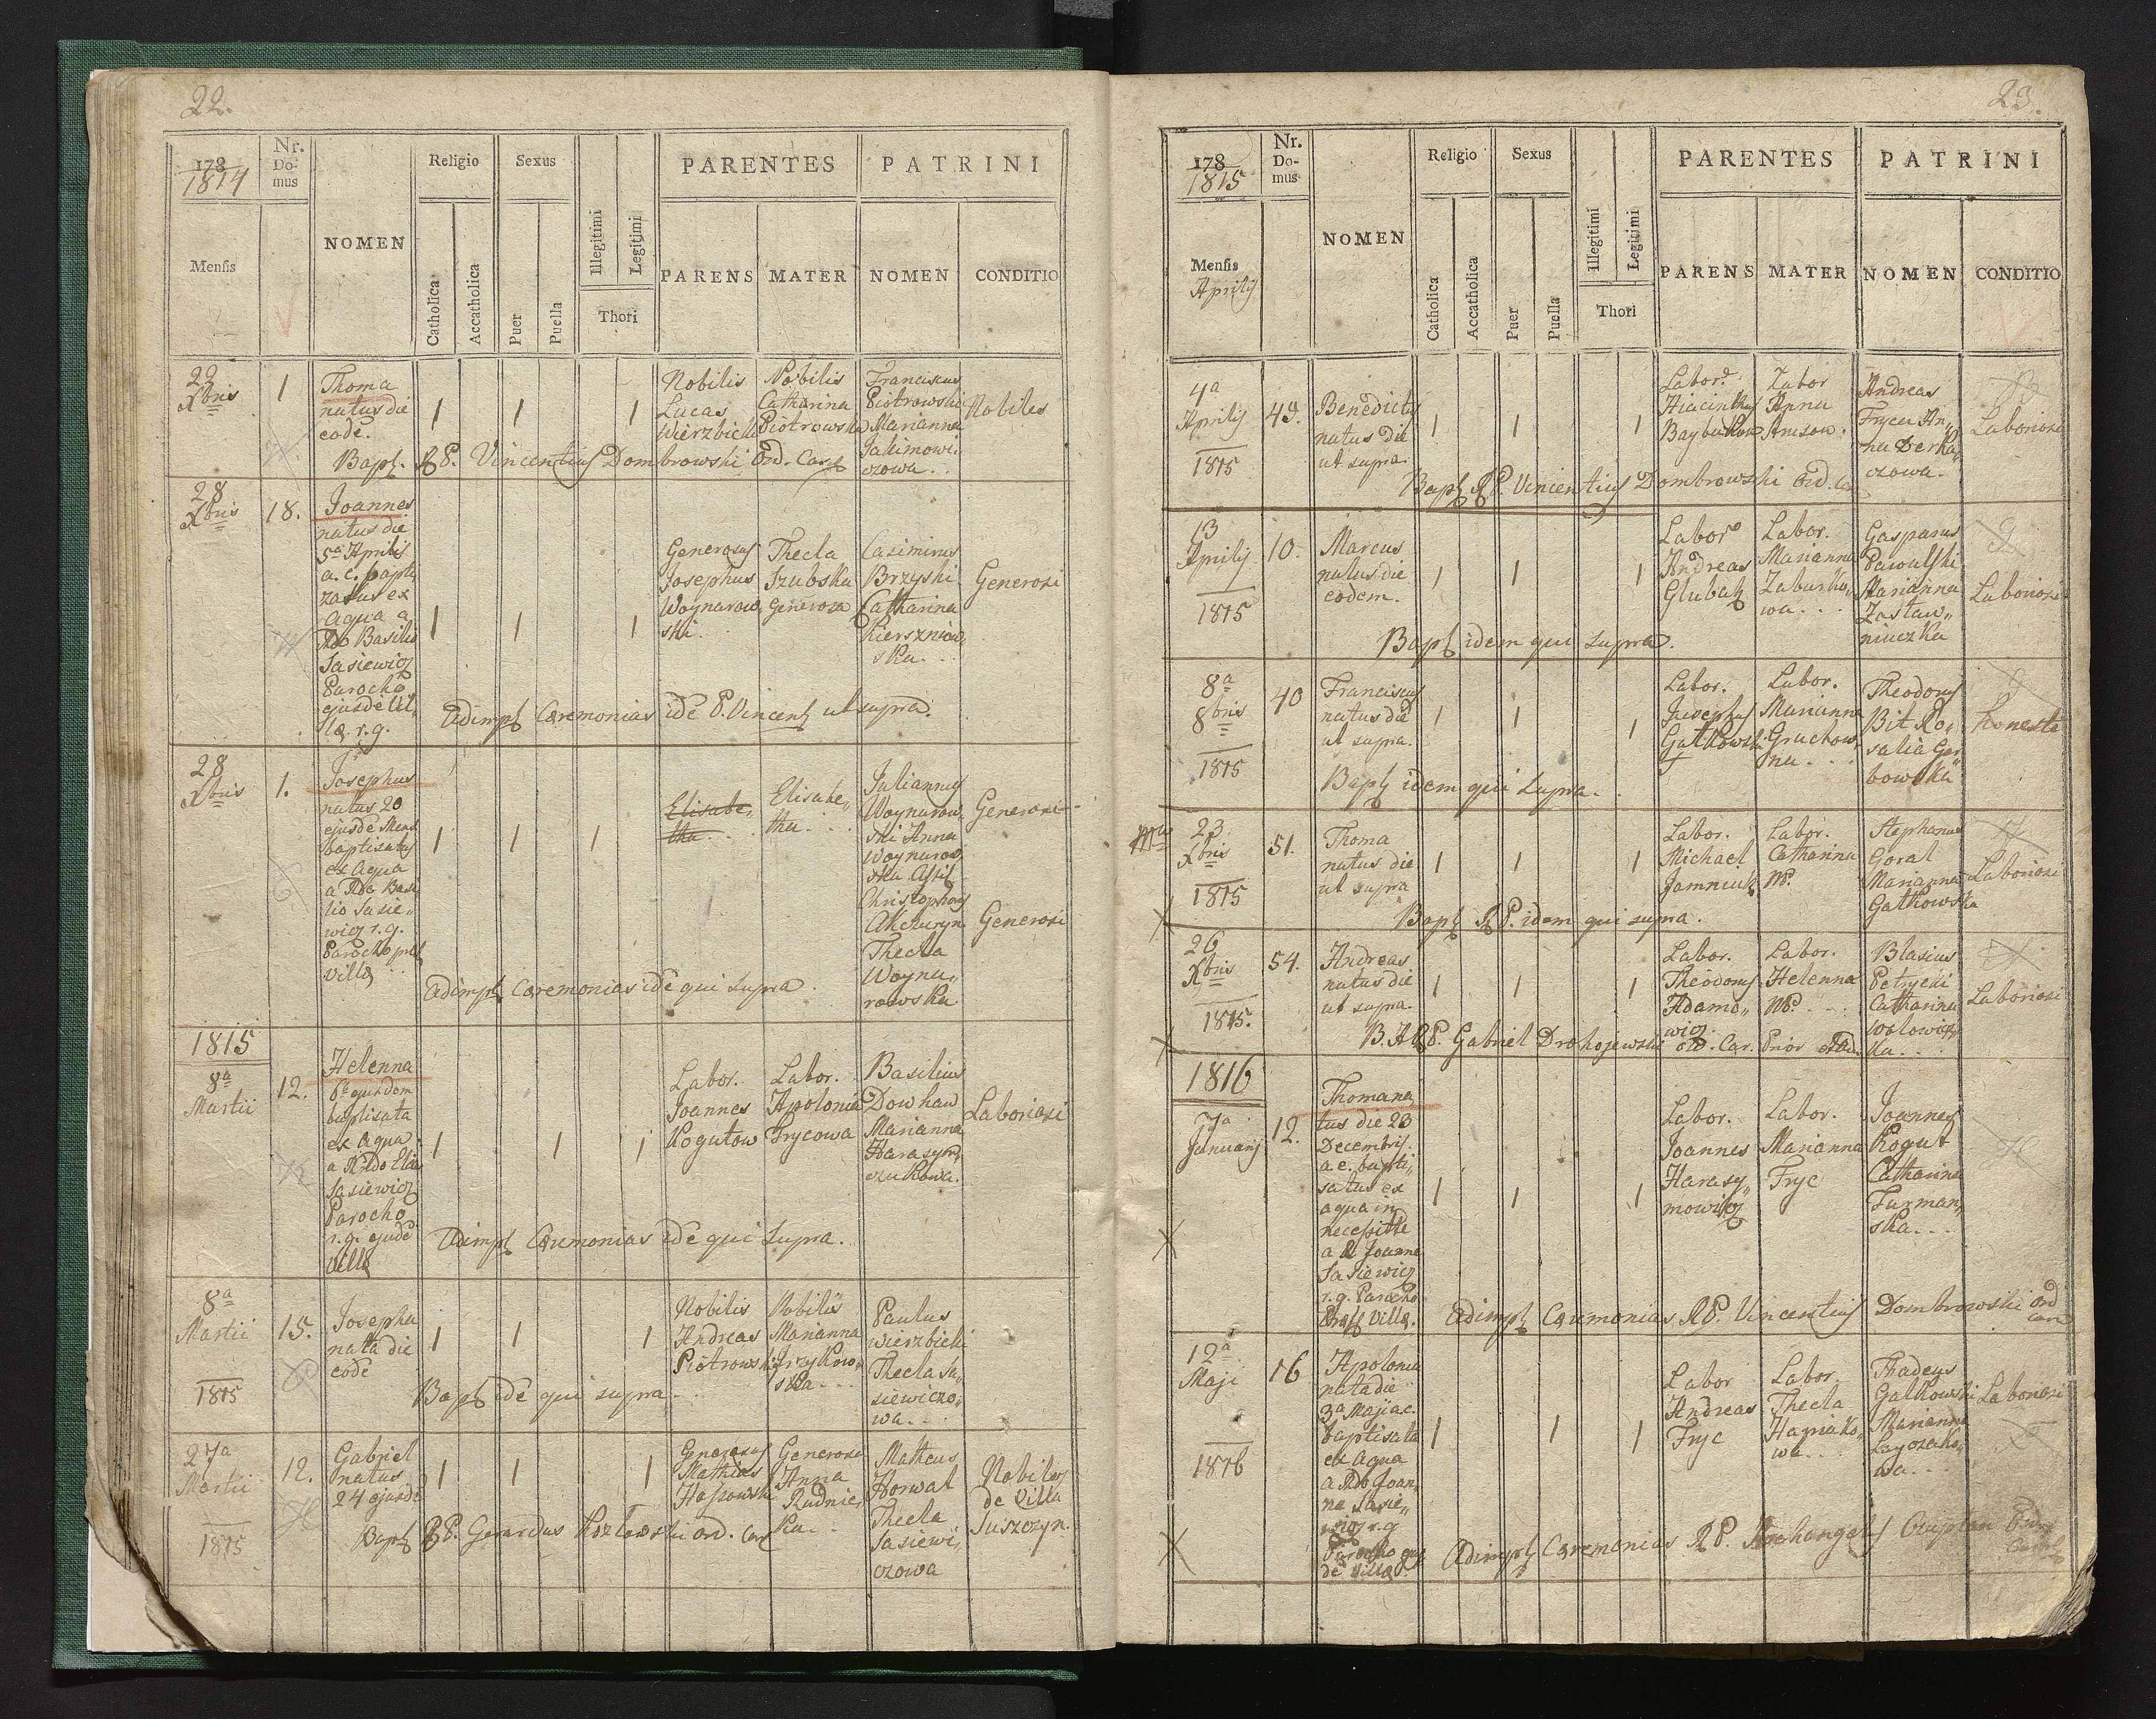 22.
178
1814
Nr. Domus
NOMEN
Religio
Sexus
PARENTES
PATRINI
Mensis
Catholica
Accatholica
Puer
Puella
Illegitimi
Legitimi
Thori
PARENS
MATER
NOMEN
CONDITIO
22 Xbris
1
Thoma
natus die
eode.
1
1
1
Nobilis
Lucas
Wierzbicki
Nobilis
Catharina
Piotrowska
Franciscus
Piotrowski
Marianna
Jakimowi,,
czowa . .
Nobiles
Bapt. RP. Vincentius Dombrowski Ord. Car
28 Xbris
18.
Joannes
natus die
5a Aprilis
a. c. bapti
zatus ex
Aqua a
Rdo Basilio
Sasiewicz
Parocho
ejusde Vil,,
læ r. g.
1
1
1
Generosus
Josephus
Woynarow,
ski.
Thecla
Szubska
Generosa
Casimirus
Brzyski
Catharina
Kierszniow,,
ska. . .
Generosi
Adimpl Cæremonias ide P. Vincent ut supra.
28 Xbris
1.
Josephus
natus 20
ejusde Mens
baptisatus
ex Aqua
a Rdo Basi
lio Sasie,,
wicz r. g.
Parocho
villæ
1
1
1
Elisabe,
tha . . .
Elisabe,,
tha . . .
Juliannus
Woynarow
ski Anna
Woynarow
ska Assis
Christophorus
Akczuryn
Thecla
Woyna,,
rowska
Generosi
Generosi
Adimpl Cæremonias ide qui supra.
1815
8a
Martii
12.
Helenna
6a ejusdem
baptisata
ex Aqua
a Rdo Elia
Sasiewicz
Parocho
r. g. ejusde
Villæ
1
1
1
Labor.
Joannes
Kogutow
Labor.
Apolonia
Frycowa
Basilius
Dowhan
Marianna
Harasym,
czukowa.
Laboriosi
Adimpl Cæremonias ide qui Supra.
8a
Martii
1815
15.
Josepha
nata die
eode
1
1
1
Nobilis
Andreas
Piotrowski
Nobilis
Marianna
Irzykow,,
ska . . .
Paulus
Wierzbicki
Thecla Sa,,
siewiczo,,
wa . . .
Bapt ide qui supra . .
27a
Martii
1815
12.
Gabriel
natus
24 ejusde
1
1
1
Generosus
Mathias
Hassowski
Generosa
Anna
Rudnic,
ka . .
Matheus
Horwat
Thecla
Sasiewi,,
czowa
Nobiles
de Villa
Juszczyn.
Bapt RP. Gerardus Kozłowski ord. Car
23.
178
1815
Nr. Domus
NOMEN
Religio
Sexus
PARENTES
PATRINI
Mensis
Aprilis
Catholica
Accatholica
Puer
Puella
Illegitimi
Legitimi
Thori
PARENS
MATER
NOMEN
CONDITIO
4a
Aprilis
1815
49.
Benedictus
natus die
ut supra.
1
1
1
Labor.
Hiacinthus
Labor
Anna
Andreas
Fryca An,,
na Derka,,
czowa.
Laboriosi
Bapt RP. Vincentius Dombrowski Ord. Car
13
Aprilis
1815
10.
Marcus
natus die
eodem.
1
1
1
Labor
Andreas
Glubak
Labor.
Marianna
Zaburko,,
wa . . .
Gasparus
Pawulski
Marianna
Zastaw,,
niuczka
Laboriosi
Bapt idem qui supra.
8a
8bris
1815
40
Franciscus
natus die
ut supra.
1
1
1
Labor.
Josephus
Gatkowski
Labor.
Marianna
Gruchow,
na . . .
Theodorus
Bit Ro,,
salia Gar
bowska
honesti
Bapt idem qui Supra.
23
Xbris
1815
51.
Thoma
natus die
ut supra
1
1
1
Labor.
Michael
Jamniuk
Labor.
Catharina
NP.
Stephanus
Goral
Marianna
Gatkowska
Laboriosi
Bapt RP. idem qui supra.
26
Xbris
1815.
54.
Andreas
natus die
ut supra.
1
1
1
Labor.
Theodorus
Adamo,,
wicz
Labor.
Helenna
NP. . . .
Blasius
Petrycki
Catharina
ka . .
Laboriosi
B. ARP. Gabriel Drohojewski ord. Car. Prior
1816
7a
Januarij
12.
Thoma na
tus die 23
Decembris.
a c. bapti,,
satus ex
aqua in
necessitte
a R Joanne
Sasiewicz
r. g. Parocho
Villæ.
1
1
1
Labor.
Joannes
Harasy,,
mowicz
Labor.
Marianna
Fryc
Joannes
Kogut
Catharina
Furman,,
ska . . .
Adimpl Cæremonias RP. Vincentius Dombrowski ord
Car
12a
Maji
1816
16
Apolonia
nata die
3a Maji a c.
baptisata
ex Aqua
a Rdo Joan,
ne Sasie,,
wicz r. g
Parocho ejus
de Villæ.
1
1
1
Labor
Andreas
Fryc
Labor.
Thecla
Hapiako,,
wa . .
Thadeus
Gatkowski
Marianna
wa . . .
Laboriosi
Adimpl Cæremonias RP. Archangelus